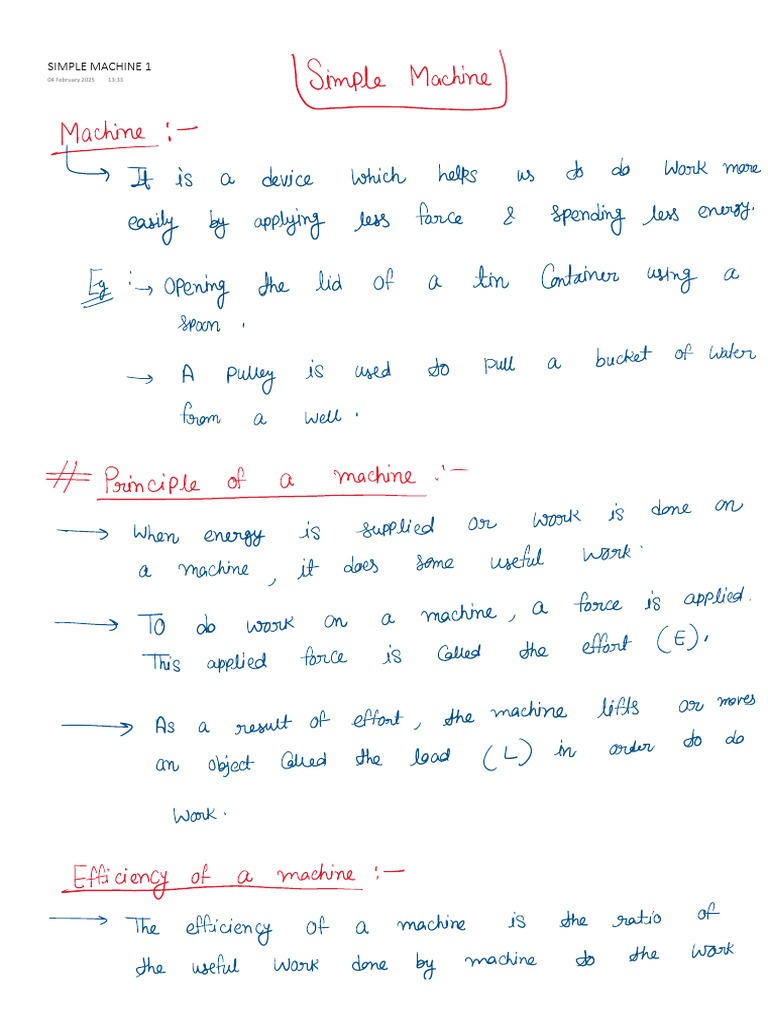 SIMPLE MACHINE 1
04 February 2025 13:33
Simple Machine
Machine :-
→ It is a device which helps us to do work more
easily by applying less force & spending less energy.
Eg :→ Opening the lid of a tin Container using a
spoon .
→ A pulley is used to pull a bucket of water
from a well .
# Principle of a machine :-
→ When energy is supplied or work is done on
a machine, it does some useful work.
→ To do work on a machine, a force is applied.
This applied force is called the effort (E).
→ As a result of effort, the machine lifts or moves
an object called the load (L) in order to do
work.
Efficiency of a machine :-
→ The efficiency of a machine is the ratio of
the useful work done by machine to the work